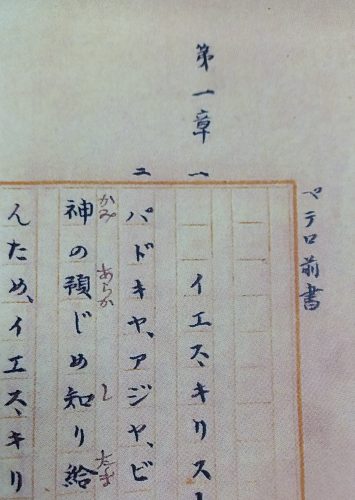 ペテロ前書
第一章 一
イエス、キリスト
二
パドキヤ、アジヤ、ビ
かみ あらか し たま
神の預じめ知り給
んため、イエス、キリ